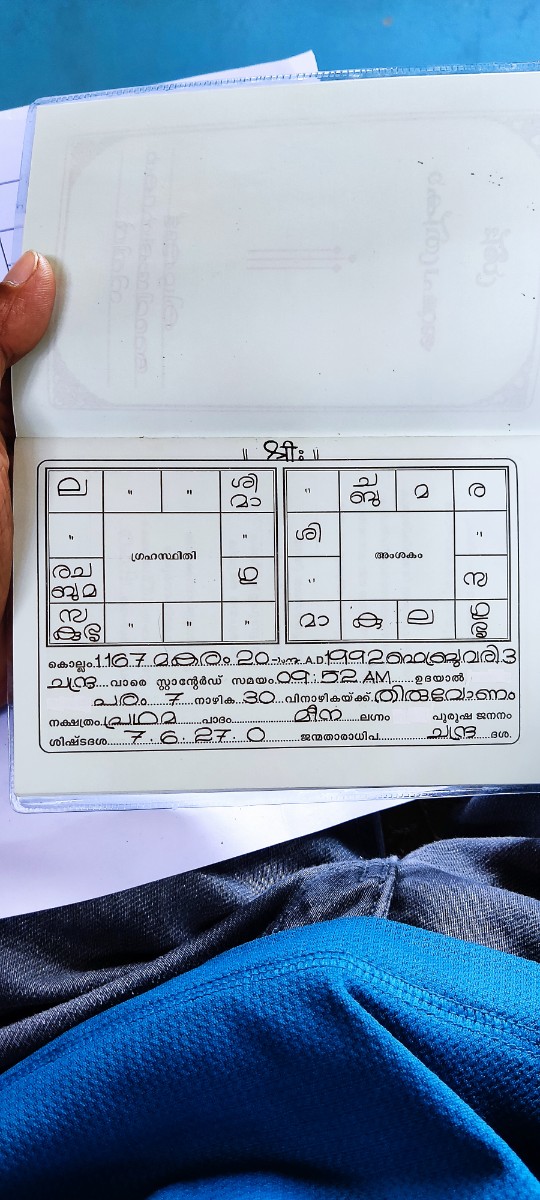 ॥ श्रीः ॥
ല " " ശി മാ
" ഗ്രഹസ്ഥിതി "
ര ച ബു മ ഗു
സ കു " " "
" ച ബു മ ര
ശി അംശകം "
" സ
മാ കു ല ഗു
കൊല്ലം 1167 മകരം 20-ാംനു A.D 1992 ഫെബ്രുവരി 3
ചന്ദ്ര വാരെ സ്റ്റാന്റേർഡ് സമയം 09:52 AM ഉദയാൽ
പരം 7 നാഴിക 30 വിനാഴികയ്ക്ക് തിരുവോണം
നക്ഷത്രം പ്രഥമ പാദം മീന ലഗ്നം പുരുഷ ജനനം
ശിഷ്ടദശ 7.6.27.0 ജന്മതാരാധിപ ചന്ദ്ര ദശ.